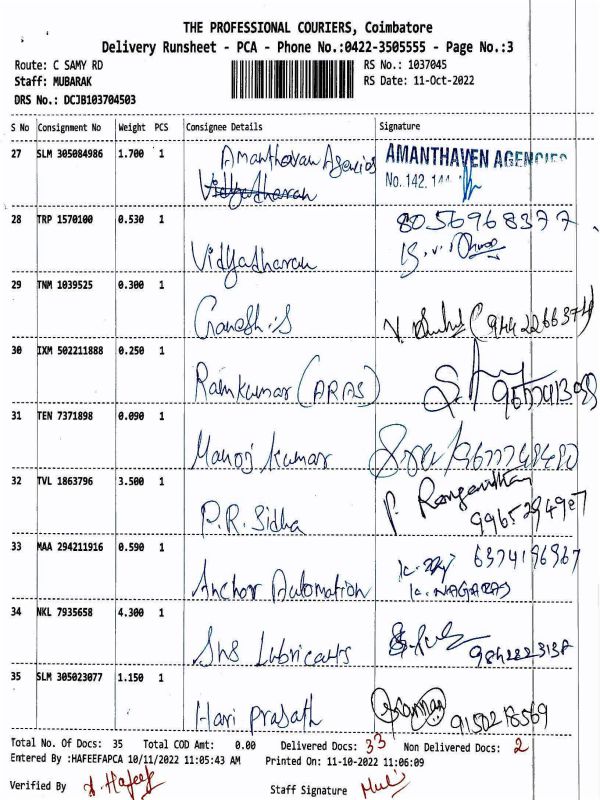 THE PROFESSIONAL COURIERS, Coimbatore
Delivery Runsheet - PCA - Phone No.:0422-3505555 - Page No.:3
Route: C SAMY RD RS No.: 1037045
Staff: MUBARAK RS Date: 11-Oct-2022
DRS No.: DCJB103704503
S No Consignment No Weight PCS Consignee Details Signature
27 SLM 305084986 1.700 1 Amanthavan Agencies AMANTHAVEN AGENCIES
Vidyadharan No. 142, 144
28 TRP 1570100 0.530 1 Vidyadharan 8056968377
29 TNM 1039525 0.300 1 Ganesh.S V. (9442266374)
30 IXM 502211888 0.250 1 Ramkumar (ARAS)
31 TEN 7371898 0.090 1 Manoj Kumar 9677748480
32 TVL 1863796 3.500 1 P.R. Sidha P. Ranganathan
9965294907
33 MAA 294211916 0.590 1 Anchor Automation 6374196967
K. NAGARAJ
34 NKL 7935658 4.300 1 Shs Lubricants
35 SLM 305023077 1.150 1 Hari Prasath 9150218569
Total No. Of Docs: 35 Total COD Amt: 0.00 Delivered Docs: 33 Non Delivered Docs: 2
Entered By :HAFEEFAPCA 10/11/2022 11:05:43 AM Printed On: 11-10-2022 11:06:09
Verified By A. Hafeef Staff Signature